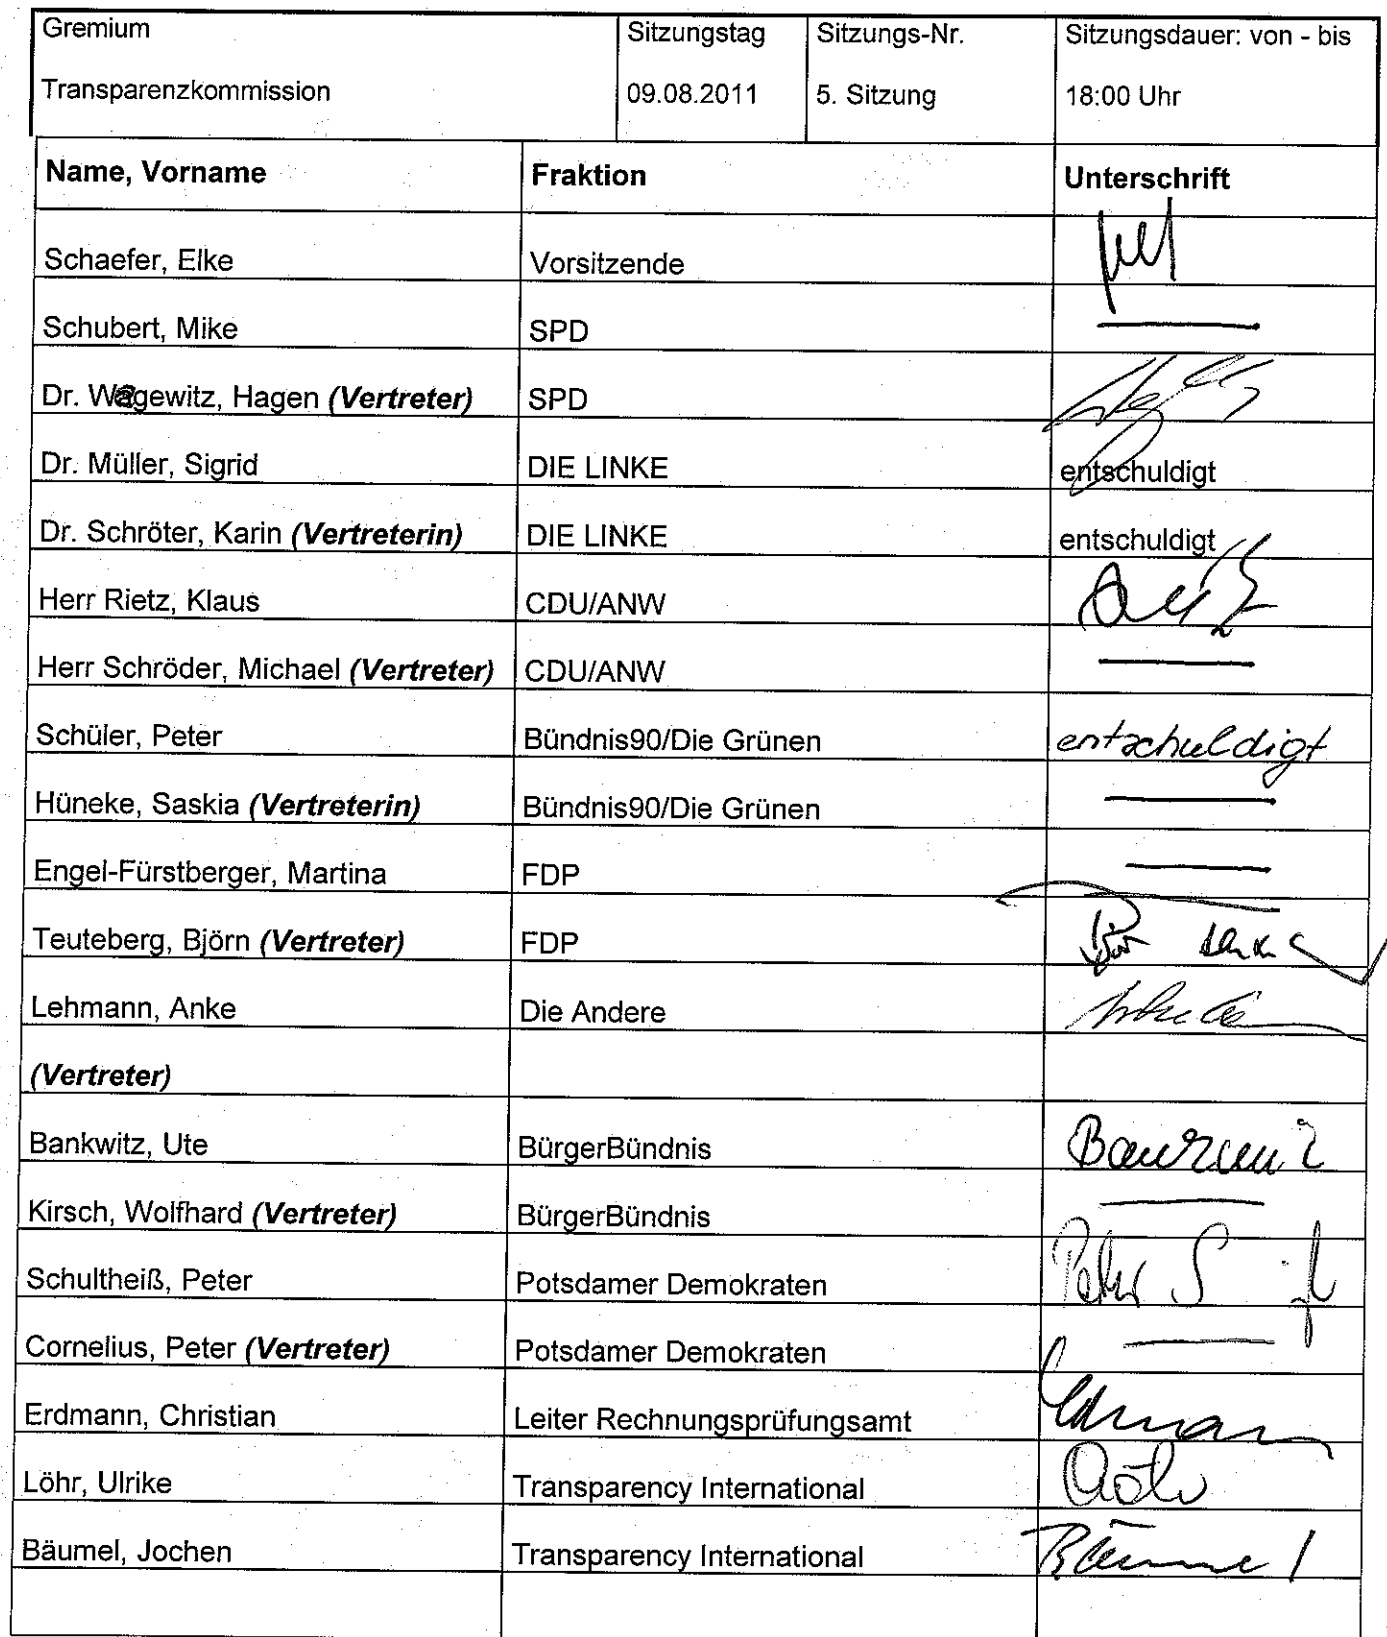 Gremium Sitzungstag Sitzungs-Nr. Sitzungsdauer: von - bis
Transparenzkommission 09.08.2011 5. Sitzung 18:00 Uhr
Name, Vorname Fraktion Unterschrift
Schaefer, Elke Vorsitzende
Schubert, Mike SPD
Dr. Wegewitz, Hagen (Vertreter) SPD
Dr. Müller, Sigrid DIE LINKE entschuldigt
Dr. Schröter, Karin (Vertreterin) DIE LINKE entschuldigt
Herr Rietz, Klaus CDU/ANW
Herr Schröder, Michael (Vertreter) CDU/ANW
Schüler, Peter Bündnis90/Die Grünen entschuldigt
Hüneke, Saskia (Vertreterin) Bündnis90/Die Grünen
Engel-Fürstberger, Martina FDP
Teuteberg, Björn (Vertreter) FDP
Lehmann, Anke Die Andere
(Vertreter)
Bankwitz, Ute BürgerBündnis
Kirsch, Wolfhard (Vertreter) BürgerBündnis
Schultheiß, Peter Potsdamer Demokraten
Cornelius, Peter (Vertreter) Potsdamer Demokraten
Erdmann, Christian Leiter Rechnungsprüfungsamt
Löhr, Ulrike Transparency International
Bäumel, Jochen Transparency International